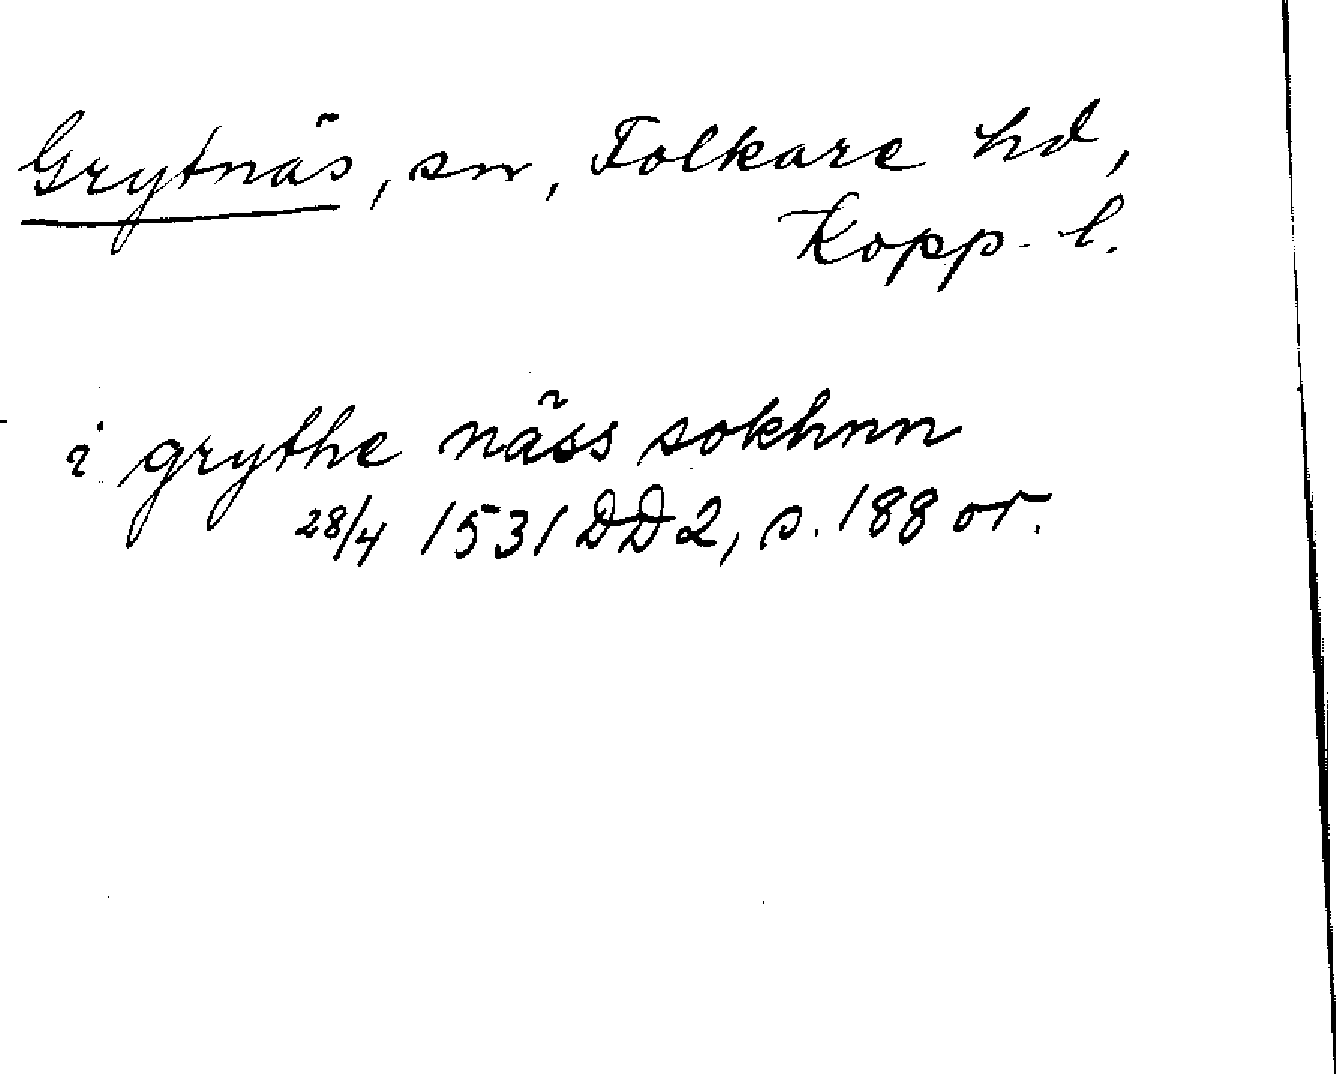 Grytnäs, sn, Folkare hd,
Kopp. l.
i grythe näss sokhnn
28/4 1531 DD2, s. 188 or.